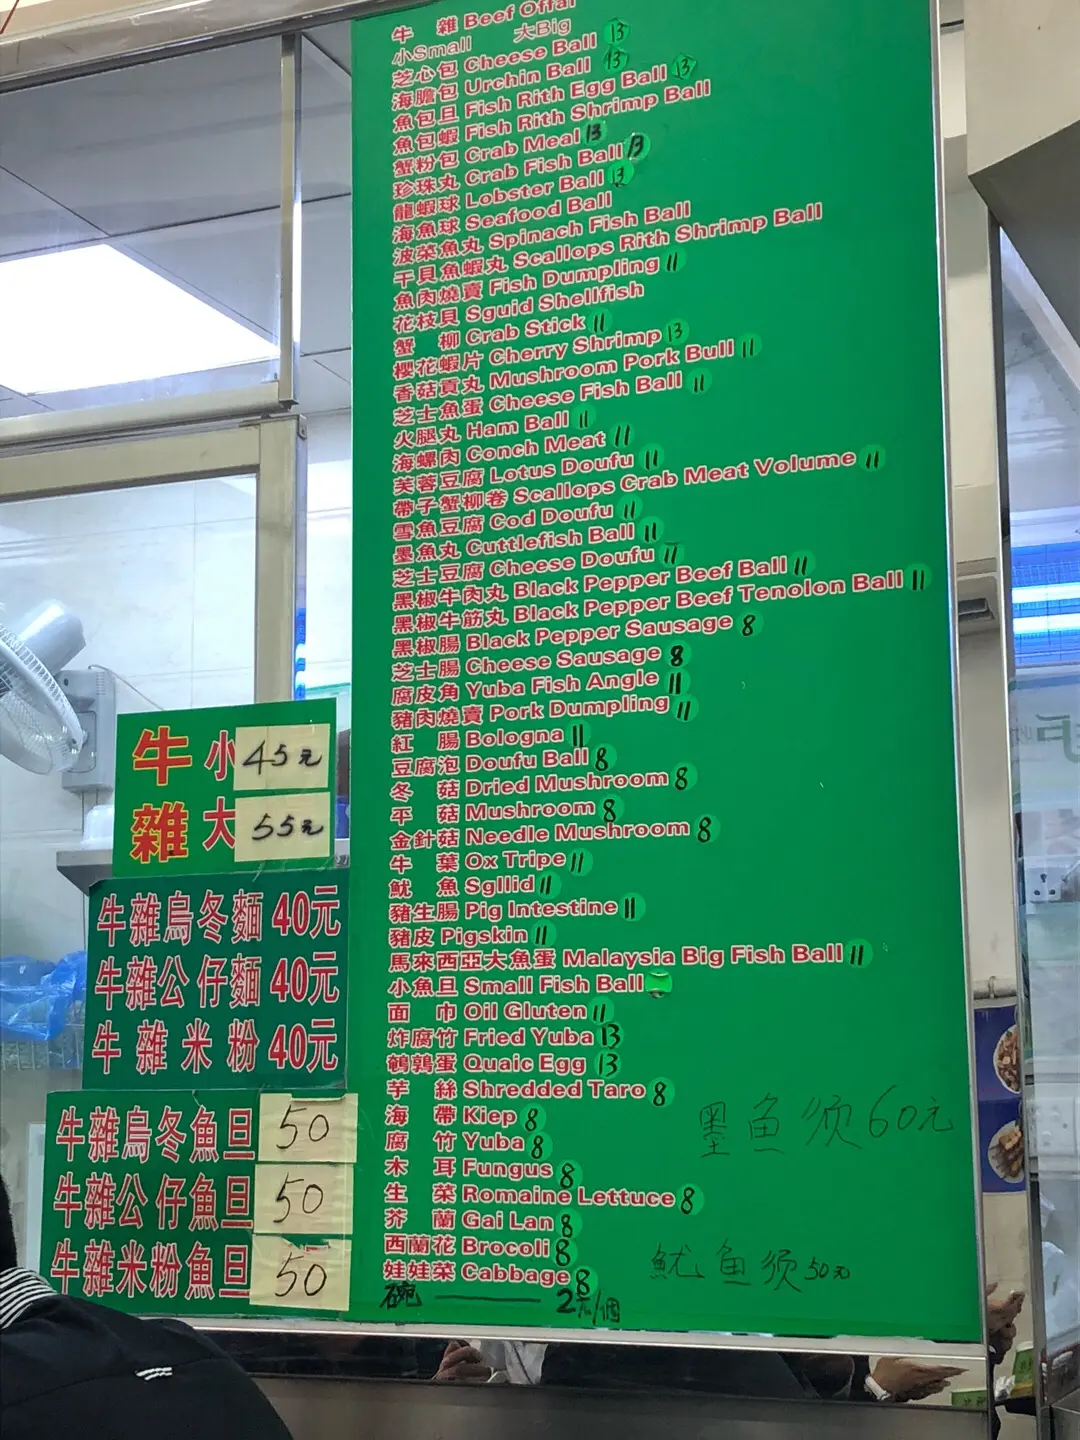 牛 雜 Beef Offal
小Small 大Big
芝心包 Cheese Ball 13
海膽包 Urchin Ball 13
魚包旦 Fish Rith Egg Ball 13
魚包蝦 Fish Rith Shrimp Ball
蟹粉包 Crab Meal 13
珍珠丸 Crab Fish Ball 13
龍蝦球 Lobster Ball 13
海魚球 Seafood Ball
波菜魚丸 Spinach Fish Ball
干貝魚蝦丸 Scallops Rith Shrimp Ball
魚肉燒賣 Fish Dumpling 11
花枝貝 Sguid Shellfish
蟹 柳 Crab Stick 11
櫻花蝦片 Cherry Shrimp 13
香菇貢丸 Mushroom Pork Bull 11
芝士魚蛋 Cheese Fish Ball 11
火腿丸 Ham Ball 11
海螺肉 Conch Meat 11
芙蓉豆腐 Lotus Doufu 11
帶子蟹柳卷 Scallops Crab Meat Volume 11
雪魚豆腐 Cod Doufu 11
墨魚丸 Cuttlefish Ball 11
芝士豆腐 Cheese Doufu 11
黑椒牛肉丸 Black Pepper Beef Ball 11
黑椒牛筋丸 Black Pepper Beef Tenolon Ball 11
黑椒腸 Black Pepper Sausage 8
芝士腸 Cheese Sausage 8
腐皮角 Yuba Fish Angle 11
豬肉燒賣 Pork Dumpling 11
紅 腸 Bologna 11
豆腐泡 Doufu Ball 8
冬 菇 Dried Mushroom 8
平 菇 Mushroom 8
金針菇 Needle Mushroom 8
牛 葉 Ox Tripe 11
魷 魚 Sgllid 11
豬生腸 Pig Intestine 11
豬皮 Pigskin 11
馬來西亞大魚蛋 Malaysia Big Fish Ball 11
小魚旦 Small Fish Ball
面 巾 Oil Gluten 11
炸腐竹 Fried Yuba 13
鵪鶉蛋 Quaic Egg 13
芋 絲 Shredded Taro 8
海 帶 Kiep 8
腐 竹 Yuba 8
木 耳 Fungus 8
生 菜 Romaine Lettuce 8
芥 蘭 Gai Lan 8
西蘭花 Brocoli 8
娃娃菜 Cabbage 8
碗 —— 2元/個
墨鱼须60元
鱿鱼须50元
牛雜
小 45元
大 55元
牛雜烏冬麵 40元
牛雜公仔麵 40元
牛雜米粉 40元
牛雜烏冬魚旦 50
牛雜公仔魚旦 50
牛雜米粉魚旦 50